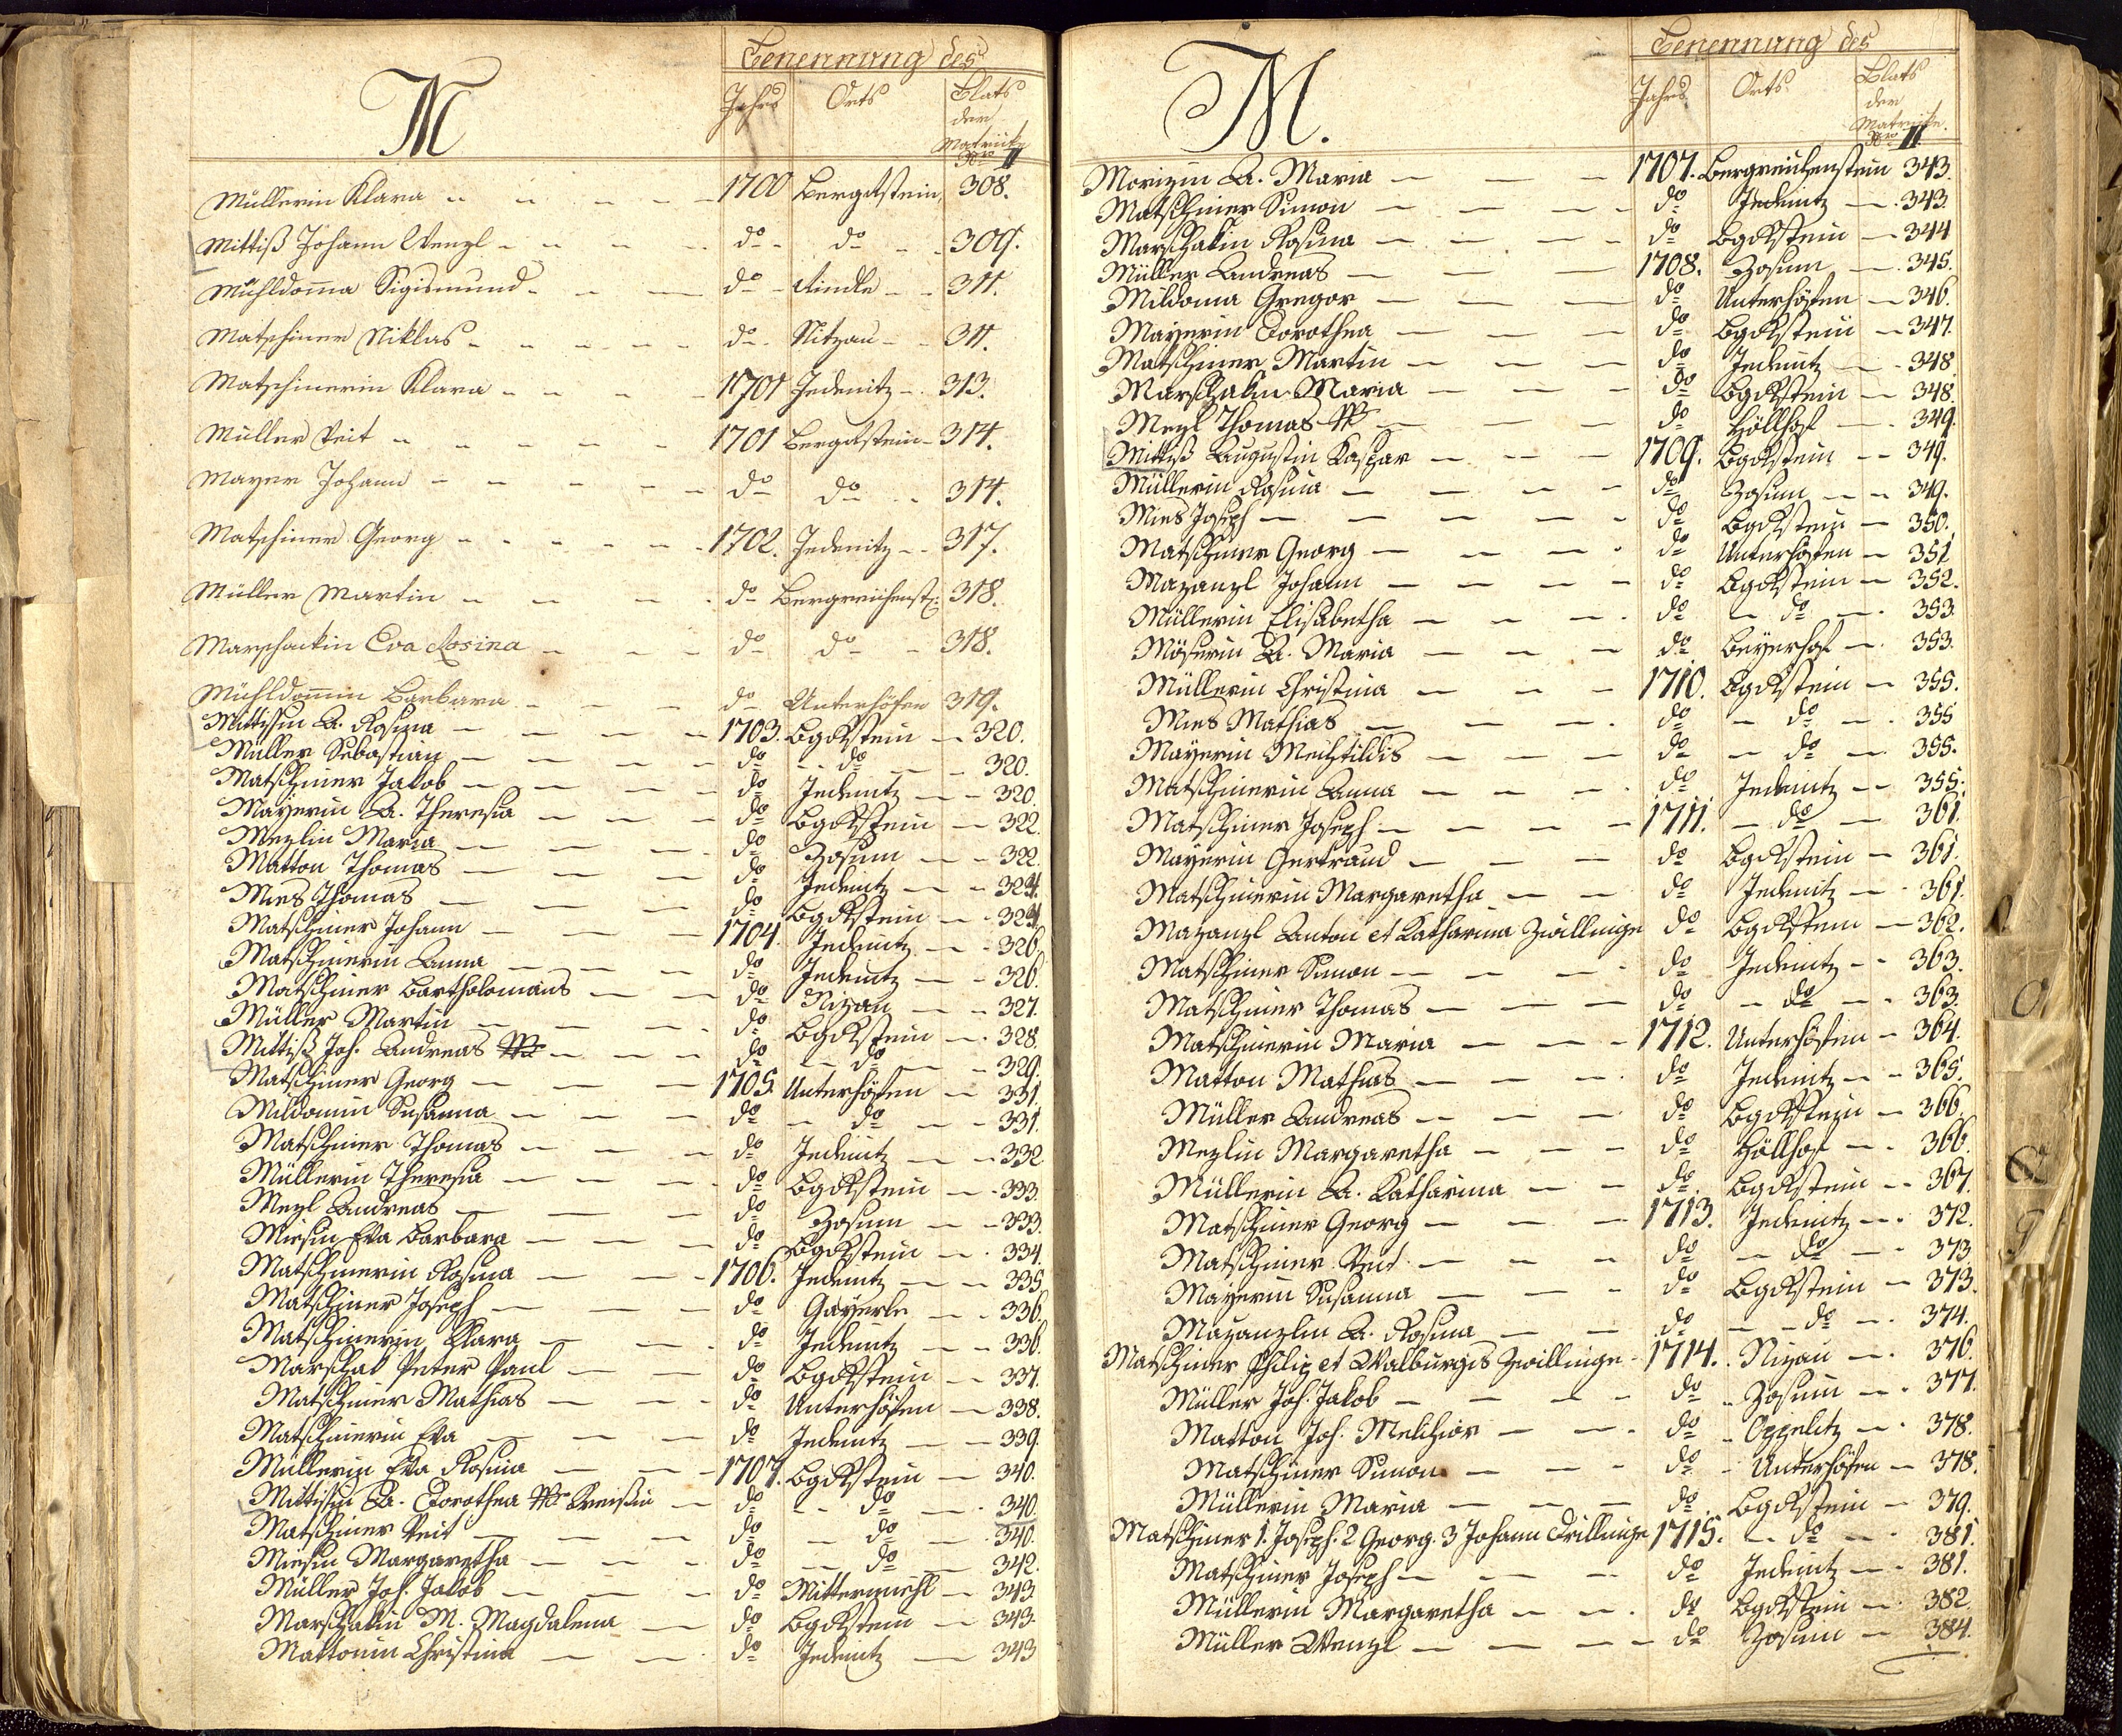 Benennung des
M
Jahrs Orts Blats der Matrick Nro II
Müllerin Klara 1700 Bergrstein 308.
Mittiß Johann Wenzl do do 309.
Mühldoma Sigismund do Aindle 311.
Matschiner Niklas do Nitzau 311.
Matschinerin Klara 1701 Jedenitz 313.
Müller Veit 1701 Bergrstein 314.
Mayer Johann do do 314.
Matschiner Georg 1702. Jedenitz 317.
Müller Martin do Bergreichenst: 318.
Marschackin Eva Rosina do do 318.
Mühldomin Barbara do Unterhöfen 319.
Mittisin A. Rosina 1703. Bgrstein 320.
Müller Sebastian do do 320.
Matschiner Jakob do Jedenitz 320.
Mayerin A. Theresia do Bgrstein 322.
Mezlin Maria do Zosum 322.
Matton Thomas do Jedenitz 324.
Mies Thomas do Bgrstein 324.
Matschiner Johann 1704. Jedenitz 326.
Matschinerin Anna do Jedenitz 326.
Matschiner Bartholomäus do Nizau 327.
Müller Martin do Bgrstein 328.
Mittiß Joh. Andreas do do 329.
Matschiner Georg 1705. Unterhöfen 331.
Mildomin Susanna do do 331.
Matschiner Thomas do Jedenitz 332.
Müllerin Theresia do Bgrstein 333.
Mezl Andreas do Zosum 333.
Miesin Eva Barbara do Bgrstein 334.
Matschinerin Rosina 1706. Jedenitz 335
Matschiner Joseph do Gayerle 336.
Matschinerin Klara do Jedenitz 336.
Marschak Peter Paul do Bgrstein 337.
Matschiner Mathias do Unterhöfen 338.
Matschinerin Eva do Jedenitz 339.
Müllerin Eva Rosina 1707. Bgrstein 340.
Mittisin A. Dorothea do do 340.
Matschiner Veit do do 340.
Miesin Margaretha do do 342.
Müller Joh. Jakob do Mittermühl 343
Marschakin M. Magdalena do Bgrstein 343
Mattonin Christina do Jedenitz 343
Benennung des
M.
Jahrs Orts Blats der Matricke. Nro II.
Morizin A. Maria 1707. Bergreichenstein 343.
Matschiner Simon do Jedenitz 343.
Marschakin Rosina do Bgrstein 344
Müller Andreas 1708. Zosum 345.
Mildoma Gregor do Unterhöfen 346.
Mayerin Dorothea do Bgrstein 347.
Matschiner Martin do Jedenitz 348
Marschakin Maria do Bgrstein 348.
Mezl Thomas do Höllhof 349.
Mittiß Augustin Kaspar 1709. Bgrstein 349.
Müllerin Rosina do Zosum 349.
Mies Joseph do Bgrstein 350.
Matschiner Georg do Unterhöfen 351
Mazanzl Johann do Bgrstein 352.
Müllerin Elisabetha do do 353.
Möserin A. Maria do Beyerhof 353.
Müllerin Christina 1710. Bgrstein 355.
Mies Mathias do do 355
Mayerin Mechtildis do do 355.
Matschinerin Anna do Jedenitz 355.
Matschiner Joseph 1711. do 361.
Mayerin Gertraud do Bgrstein 361.
Matschinerin Margaretha do Jedenitz 361.
Mazanzl Anton et Katharina Zwillinge do Bgrstein 362.
Matschiner Simon do Jedenitz 363.
Matschiner Thomas do do 363.
Matschinerin Maria 1712. Unterhöfen 364.
Matton Mathias do Jedenitz 365.
Müller Andreas do Bgrstein 366.
Mezlin Margaretha do Höllhof 366.
Müllerin A. Katharina do Bgrstein 367.
Matschiner Georg 1713. Jedenitz 372.
Matschiner Veit do do 373
Mayerin Susanna do Bgrstein 373.
Mazanzlin A. Rosina do do 374.
Matschiner Philip et Walburgis Zwillinge 1714. Nizau 376.
Müller Joh. Jakob do Zosum 377.
Matton Joh. Melchior do Oppelitz 378.
Matschiner Simon do Unterhöfen 378.
Müllerin Maria do Bgrstein 379.
Matschiner 1. Joseph. 2 Georg. 3 Johann Drillinge 1715. do 381.
Matschiner Joseph do Jedenitz 381.
Müllerin Margaretha do Bgrstein 382.
Müller Wenzl do Zosum 384.